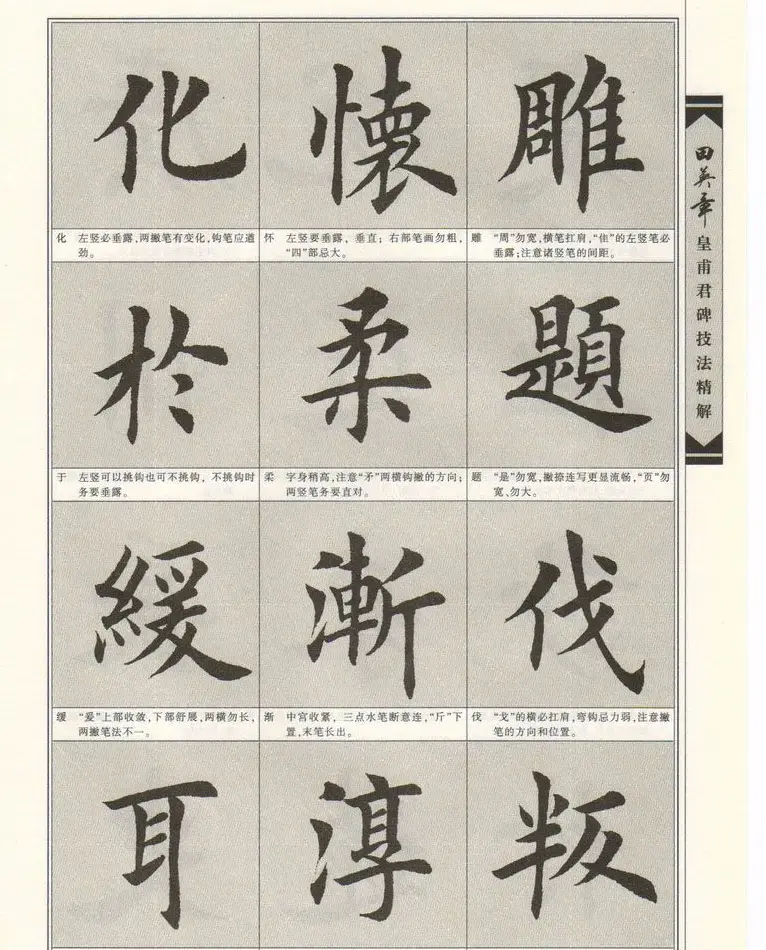 化 懷 雕
化 左竖必垂露，两撇笔有变化，钩笔应遒
劲。
怀 左竖要垂露，垂直；右部笔画勿粗，
“四”部忌大。
雕 “周”勿宽，横笔扛肩，“隹”的左竖笔必
垂露；注意诸竖笔的间距。
於 柔 題
于 左竖可以挑钩也可不挑钩，不挑钩时
务要垂露。
柔 字身稍高，注意“矛”两横钩撇的方向；
两竖笔务要直对。
题 “是”勿宽，撇捺连写更显流畅，“页”勿
宽、勿大。
緩 漸 伐
缓 “爰”上部收敛，下部舒展，两横勿长，
两撇笔法不一。
渐 中宫收紧，三点水笔断意连，“斤”下
置，末笔长出。
伐 “戈”的横必扛肩，弯钩忌力弱，注意撇
笔的方向和位置。
耳 淳 叛
田英章皇甫君碑技法精解